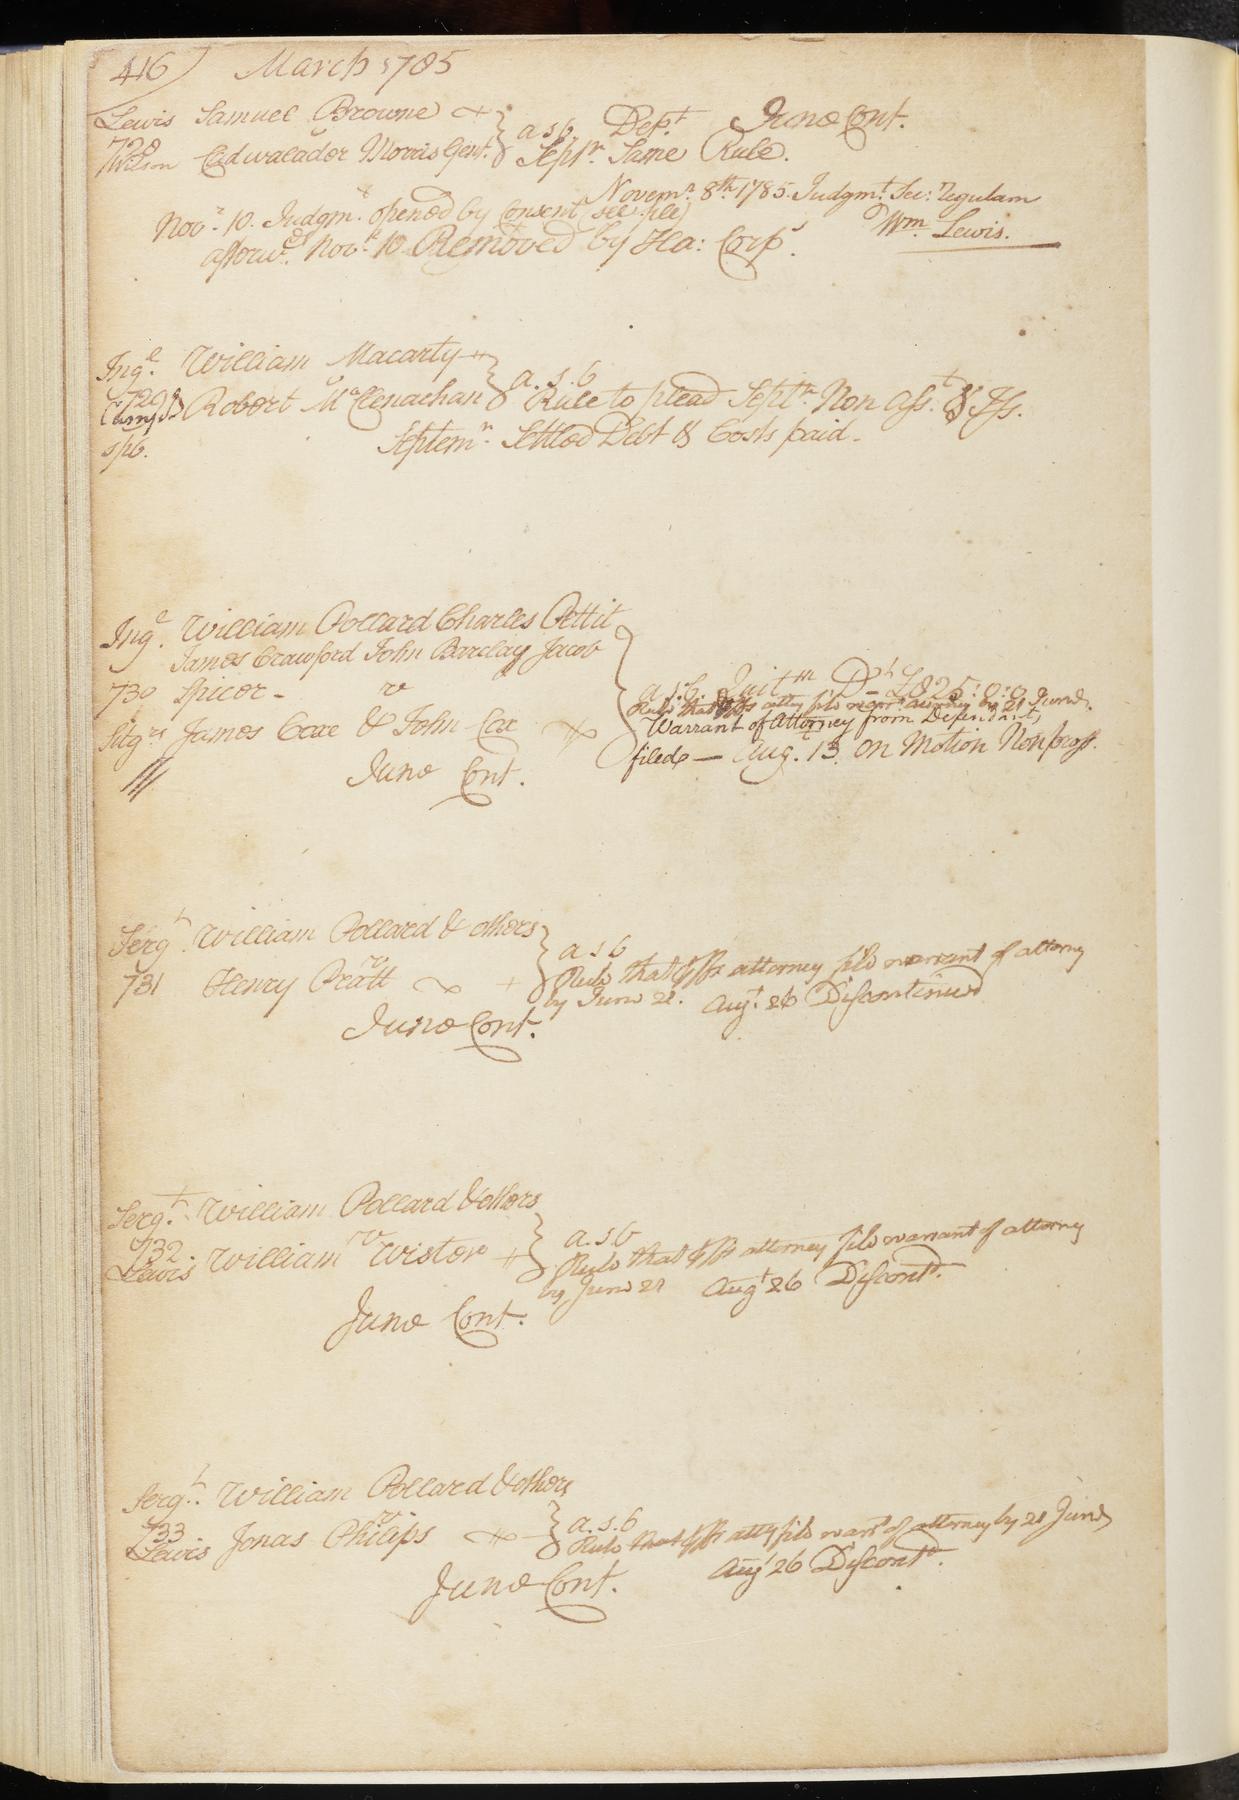 416) March 1785
Lewis Samuel Browne
728 v } a s b Dep.t June Cont.
Wilson Cadwalader Morris Gent. Sept.r Same Rule.
Novem.r 8.th 1785. Judgm.t Sec: Regulam
Wm. Lewis.
Nov.r 10. Judgm.t opened by Consent (see file)
afterw.ds Nov.r 10 Removed by Ha: Corp.s
Ing.l William Macarty
729 v } a. s. b
Rob.ert McClenachan Rule to plead Sept.r Non Ass.t & Iss.
spb. Septem.r Settled Debt & Costs paid.
Ing.l William Pollard Charles Pettit
James Crawford John Barclay Jacob
730 Spicer - v
Sitg.s James Coxe & John Cox
a. s. b. D.t £825:0:0
Rule that attys file by 21 June.
Warrant of Attorney from Defendants
filed — Aug. 13. On Motion Non pross.
June Cont.
Serg.t William Pollard & others
731 v } a s b
Henry Pratt Rule that pffs attorney file warrant of attorney
by June 21. Aug.t 26 Discontinued
June Cont.
Serg.t William Pollard & others
732. v } a. s b
Lewis William Wister Rule that pffs attorney file warrant of attorney
by June 21 Aug.t 26 Discont.d
June Cont.
Serg.t William Pollard & others
733 v } a. s. b
Lewis Jonas Philips Rule that pffs atty file warr.t of attorney by 21 June
Aug.t 26 Discont.d
June Cont.